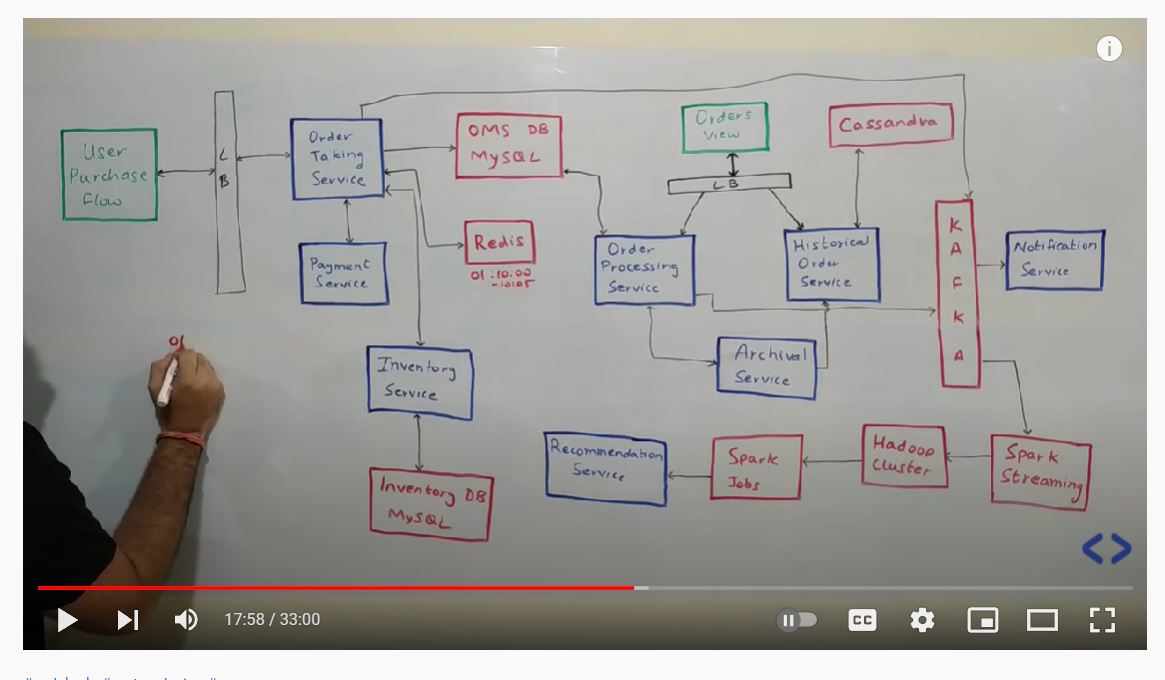 User
Purchase
Flow
L
B
Order
Taking
Service
Payment
Service
OMS DB
MySQL
Redis
01:10:00
-10:05
Inventory
Service
Inventory DB
MySQL
Orders
View
LB
Cassandra
Order
Processing
Service
Historical
Order
Service
Archival
Service
K
A
F
K
A
Notification
Service
Recommendation
Service
Spark
Jobs
Hadoop
Cluster
Spark
Streaming
01
i
<>
17:58 / 33:00
CC